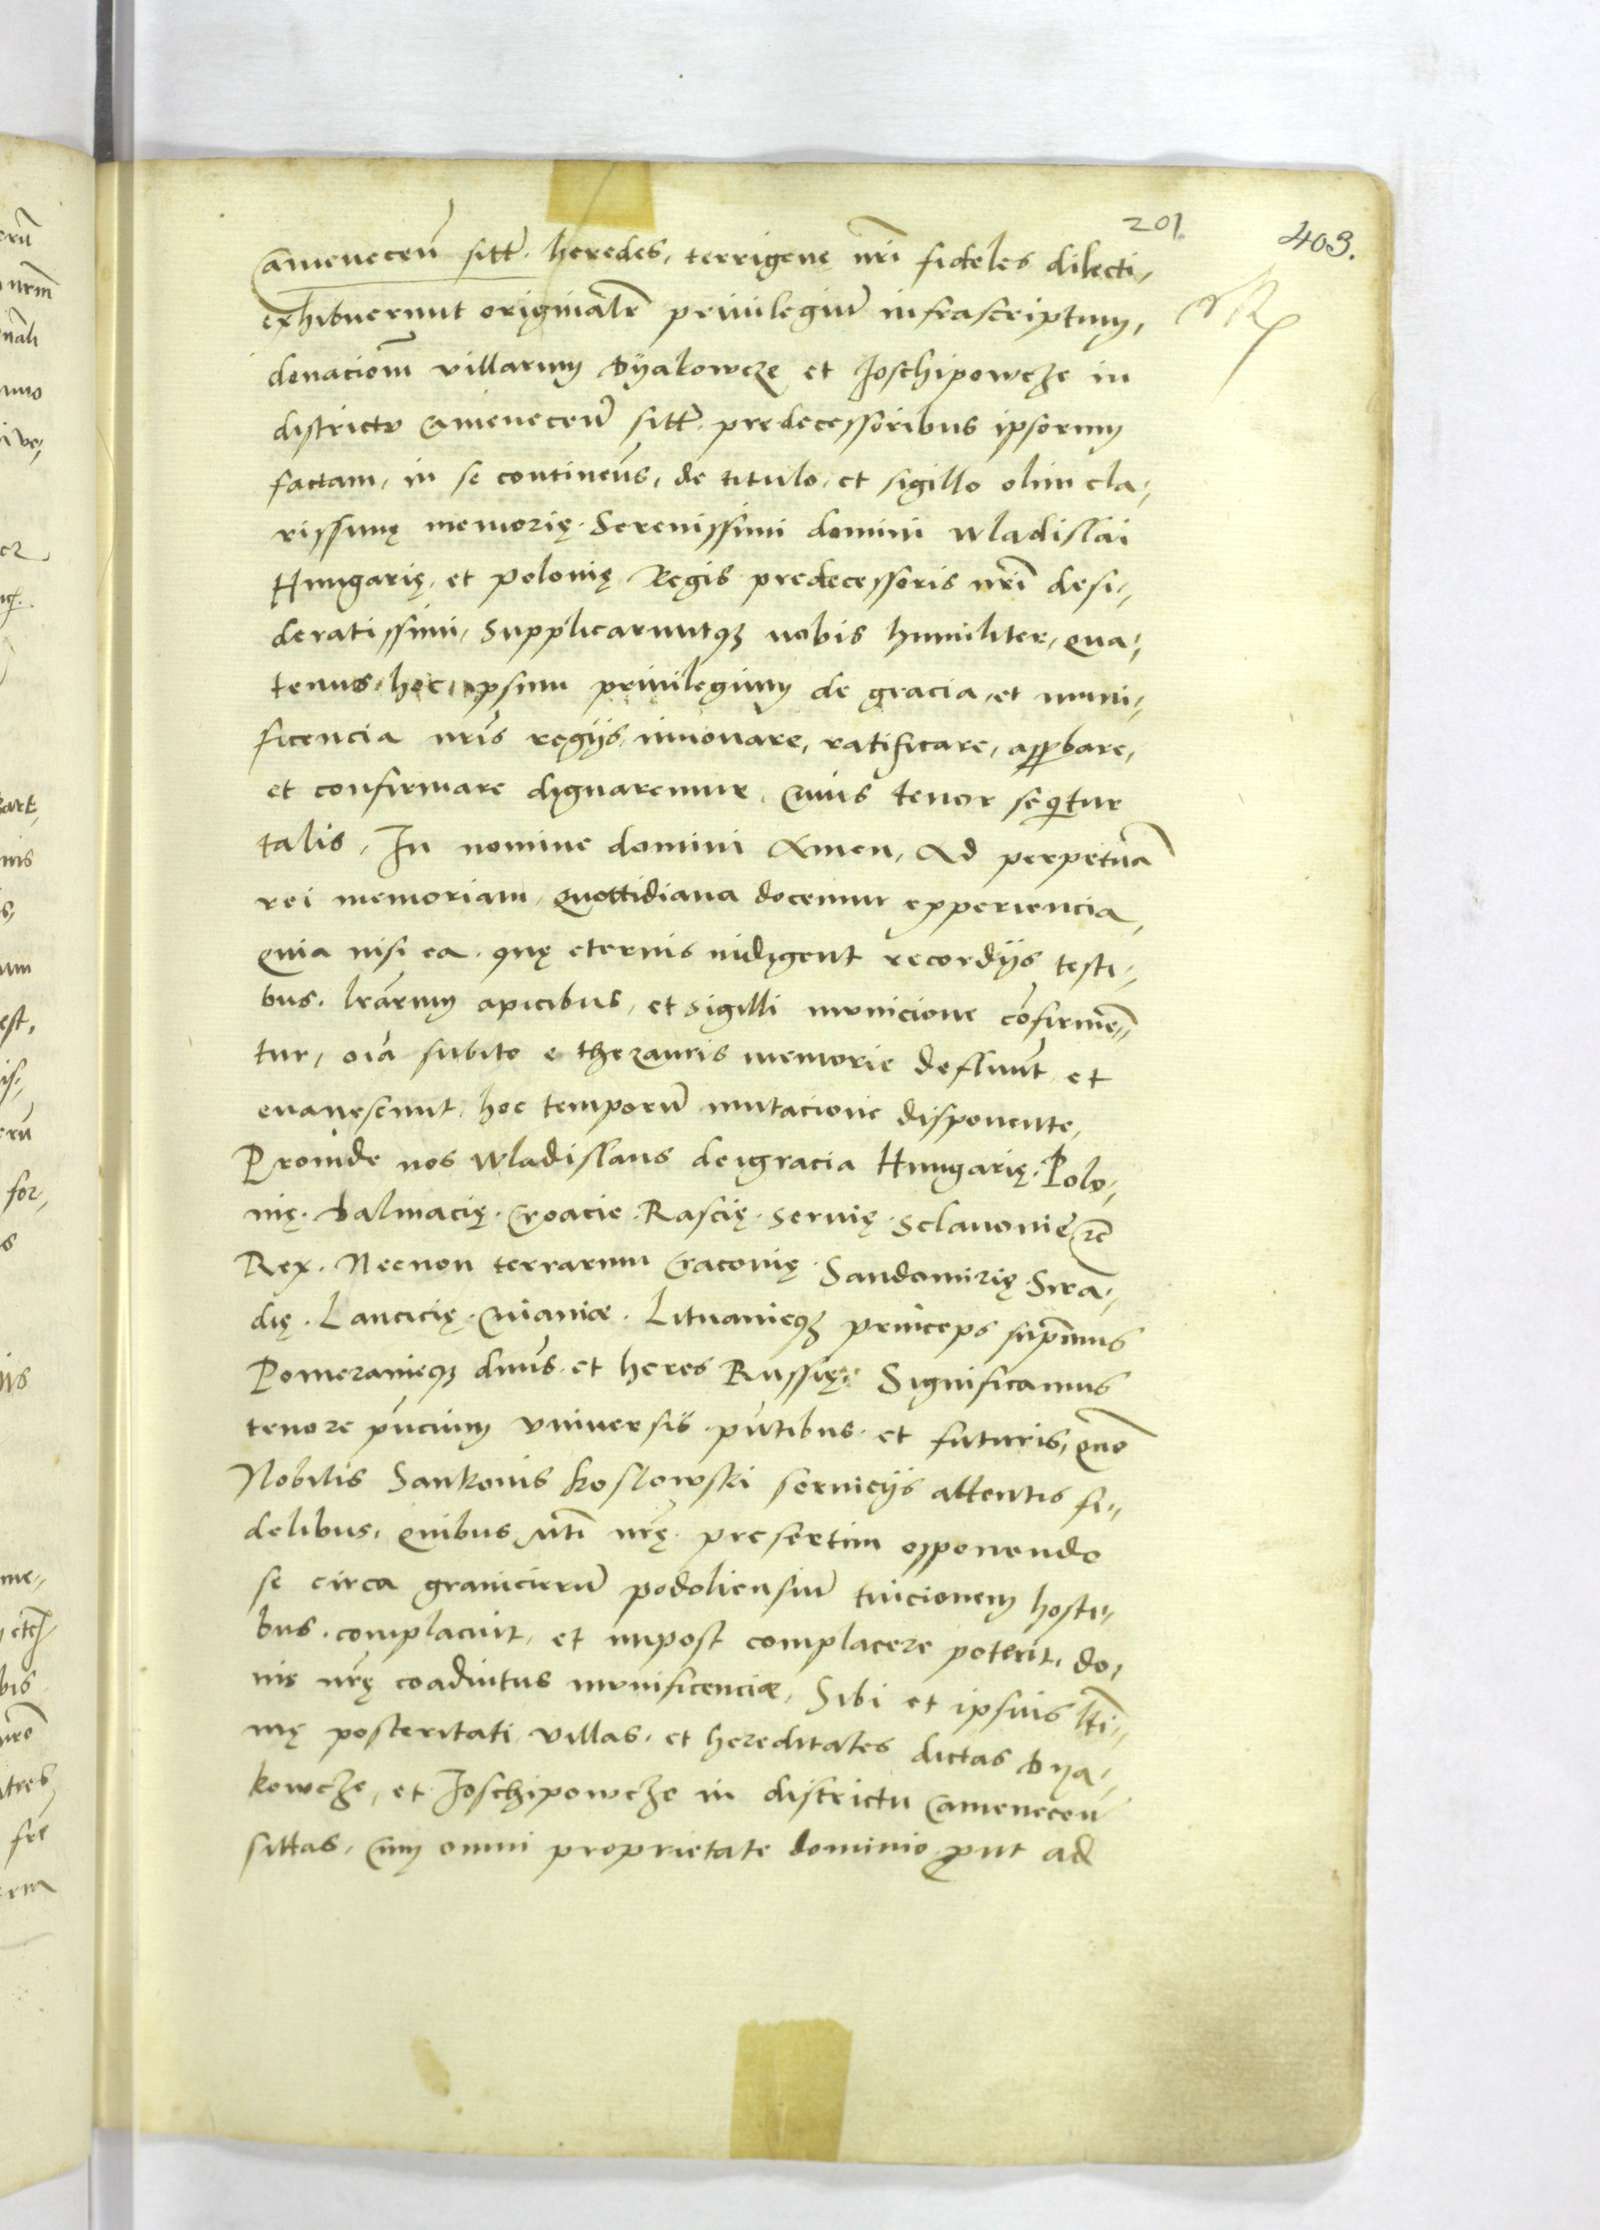 201.
403.
Camenecen̄ sitt̄. heredes, terrigene nr̄i fideles dilecti,
exhibuerunt originale privilegiū infrascriptum,
donacionē villarum Dyakowcze et Joschipowcze in
districtu Camenecen̄ sitt̄. predecessoribus ipsorum
factam, in se continens̄, de titulo, et sigillo olim cla,,
rissimę memorię Serenissimi domini Wladislai
Hungarię, et Polonię Regis predecessoris nr̄i desi,,
deratissimi, Supplicaruntqȝ nobis humiliter, qua,,
tenus hoc ipsum privilegium de gracia, et muni,,
ficencia nr̄is regijs innovare, ratificare, approbare,
et confirmare dignaremur, Cuius tenor sequitur
talis, In nomine domini Amen, Ad perpetuā
rei memoriam, Quottidiana docemur experiencia,
quia nisi ea quę eternis indigent recordijs testi,,
bus, lrārum apicibus, et sigilli municione cōfirmē,,
tur, oīa subito e thezauris memorie defluūt et
evanescunt hoc temporū mutacione disponente,
Proinde nos Wladislaus dei gracia Hungarię, Polo,,
nię, Dalmacię, Croacie, Rascię, Servię, Sclavonie &c̄
Rex. Necnon terrarum Cracovię, Sandomirię, Sira,,
dię, Lancicię, Cuiaviæ, Lituanieqȝ princeps sup̄mus
Pomeranieqȝ dn̄us et heres Russię. Significamus
tenore pn̄cium universis pn̄tibus et futuris, quō
Nobilis Sankonis Koslowski servicijs attentis fi,,
delibus, quibus Mt̄i nr̄ę presertim opponendo
se circa granicierū podoliensiū tuicionem hosti,,
bus complacuit, et inpost complacere poterit, do,,
nis nr̄ę coadiutus munificenciæ, Sibi et ipsius ltī,,
mę posteritati villas et hereditates dictas Dya,,
kowcze, et Joschipowcze in districtu Camenecen̄
sittas, Cum omni proprietate dominio prout ad